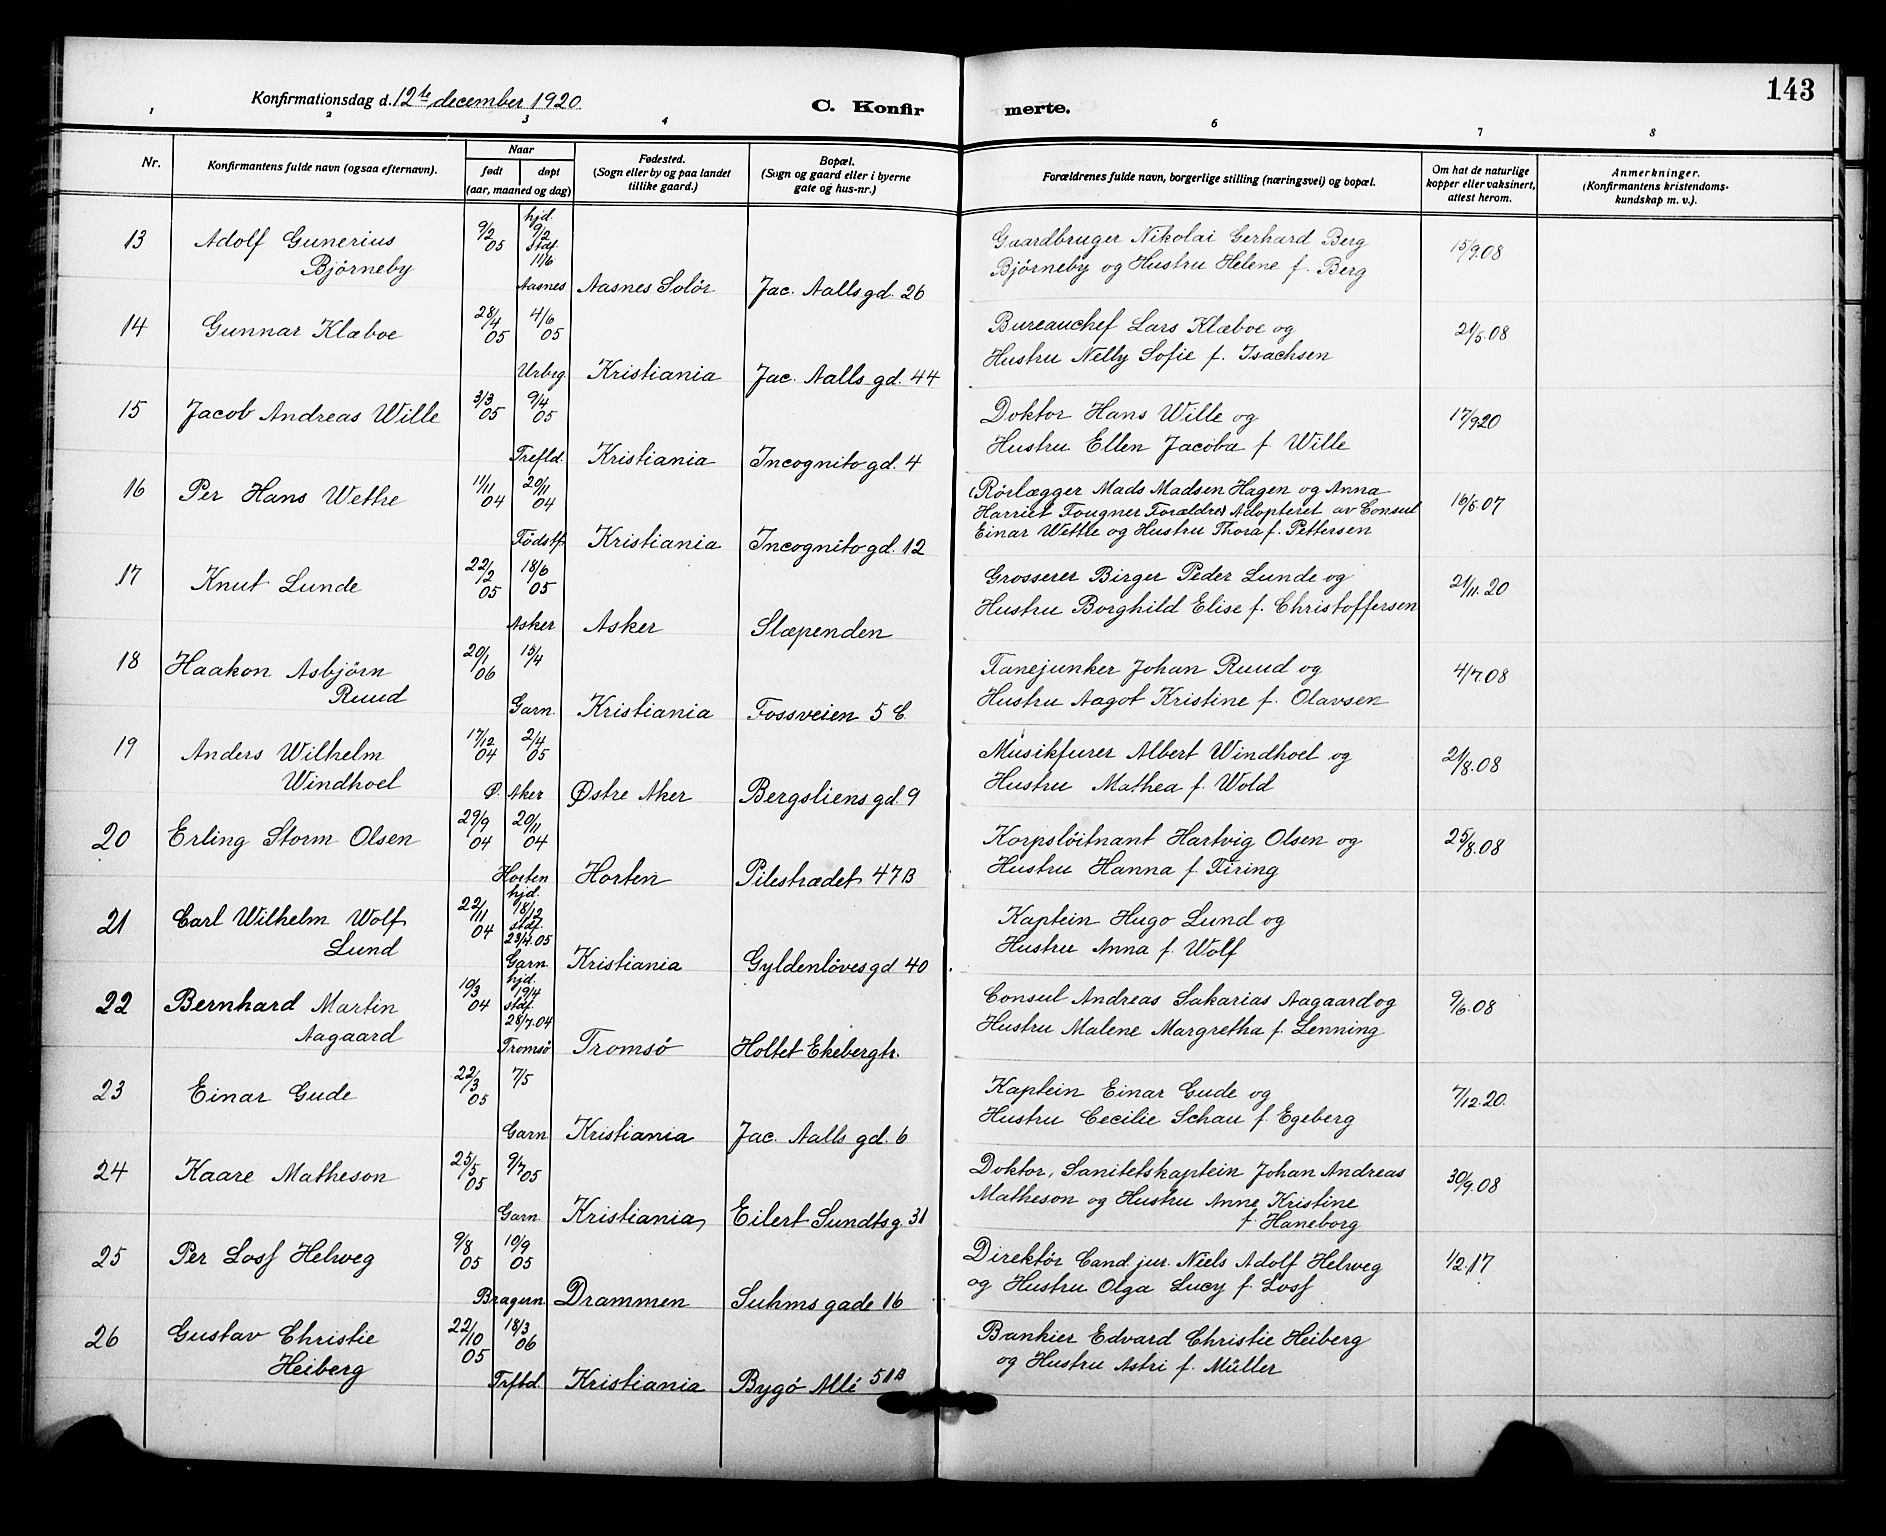 143
Konfirmationsdag d. 12te december 1920.
C. Konfirmerte.
1 2 3 4 6 7 8
Nr.
Konfirmantens fulde navn (ogsaa efternavn).
Naar
født døpt
(aar, maaned og dag)
Fødested.
(Sogn eller by og paa landet
tillike gaard.)
Bopæl.
(Sogn og gaard eller i byerne
gate og hus-nr.)
Forældrenes fulde navn, borgerlige stilling (næringsvei) og bopæl.
Om hat de naturlige
kopper eller vaksinert,
attest herom.
Anmerkninger.
(Konfirmantens kristendoms-
kundskap m. v.).
13 Adolf Gunerius
Bjørneby
9/2 05
hjd. 9/2 Stdf. 11/6
Aasnes Aasnes Solør Jac. Aalls gd. 26
Gaardbruger Nikolai Gerhard Berg
Bjørneby og Hustru Helene f. Berg
15/9.08
14 Gunnar Klæboe 28/4 05 4/6 05
Urbrg Kristiania Jac. Aalls gd. 44
Bureauchef Lars Klæboe og
Hustru Nelly Sofie f. Isachsen
21/5.08
15 Jacob Andreas Wille 3/3 05 9/4 05
Trefld. Kristiania Incognito gd. 4
Doktor Hans Wille og
Hustru Ellen Jacoba f. Wille
17/9 20
16 Per Hans Wettre 11/11 04 20/11 04
Fødstf. Kristiania Incognito gd. 12
(Rørlægger Mads Madsen Hagen og Anna
Harriet Fougner Forældre) Adopteret av Consul
Einar Wettre og Hustru Thora f. Pettersen
16/5.07
17 Knut Lunde 22/2 05 18/6 05
Asker Asker Slæpenden
Grosserer Birger Peder Lunde og
Hustru Borghild Elise f. Christoffersen
21/11.20
18 Haakon Asbjørn
Ruud
20/1 06 15/4
Garn. Kristiania Fossveien 5 C.
Fanejunker Johan Ruud og
Hustru Aagot Kristine f. Olavsen
4/7.08
19 Anders Wilhelm
Windhoel
17/12 04 2/4 05
Ø. Aker Østre Aker Bergsliens gd. 9
Musikfurer Albert Windhoel og
Hustru Mathea f. Wold
21/8.08
20 Erling Storm Olsen 29/9 04 20/11 04
Horten Horten Pilestrædet 47B
Korpsløitnant Hartvig Olsen og
Hustru Hanna f. Firing
25/8.08
21 Carl Wilhelm Wolf
Lund
22/11 04
hjd. 18/12 stdf. 23/4.05
Garn. Kristiania Gyldenløves gd 40
Kaptein Hugo Lund og
Hustru Anna f. Wolf
22 Bernhard Martin
Aagaard
10/3 04
hjd. 19/4 stdf. 28/7.04
Tromsø Tromsø Holtet Ekebergtr.
Consul Andreas Sakarias Aagaard og
Hustru Malene Margretha f. Lenning
9/6.08
23 Einar Gude 22/3 05 7/5
Garn Kristiania Jac. Aalls gd. 6
Kaptein Einar Gude og
Hustru Cecilie Schau f. Egeberg
7/12.20.
24 Kaare Matheson 25/5 05 9/7 05
Garn. Kristiania, Eilert Sundtsg. 31
Doktor, Sanitetskaptein Johan Andreas
Matheson og Hustru Anne Kristine
f. Haneborg
30/9.08
25 Per Losf Helweg 9/8 05 10/9 05
Bragern Drammen Suhms gade 16
Direktør Cand. jur. Niels Adolf Helweg
og Hustru Olga Lucy f. Losf
1/2.17
26 Gustav Christie
Heiberg
22/10 05 18/3 06
Trftd. Kristiania Bygdø Allé 51B
Bankier Edvard Christie Heiberg
og Hustru Astri f. Müller